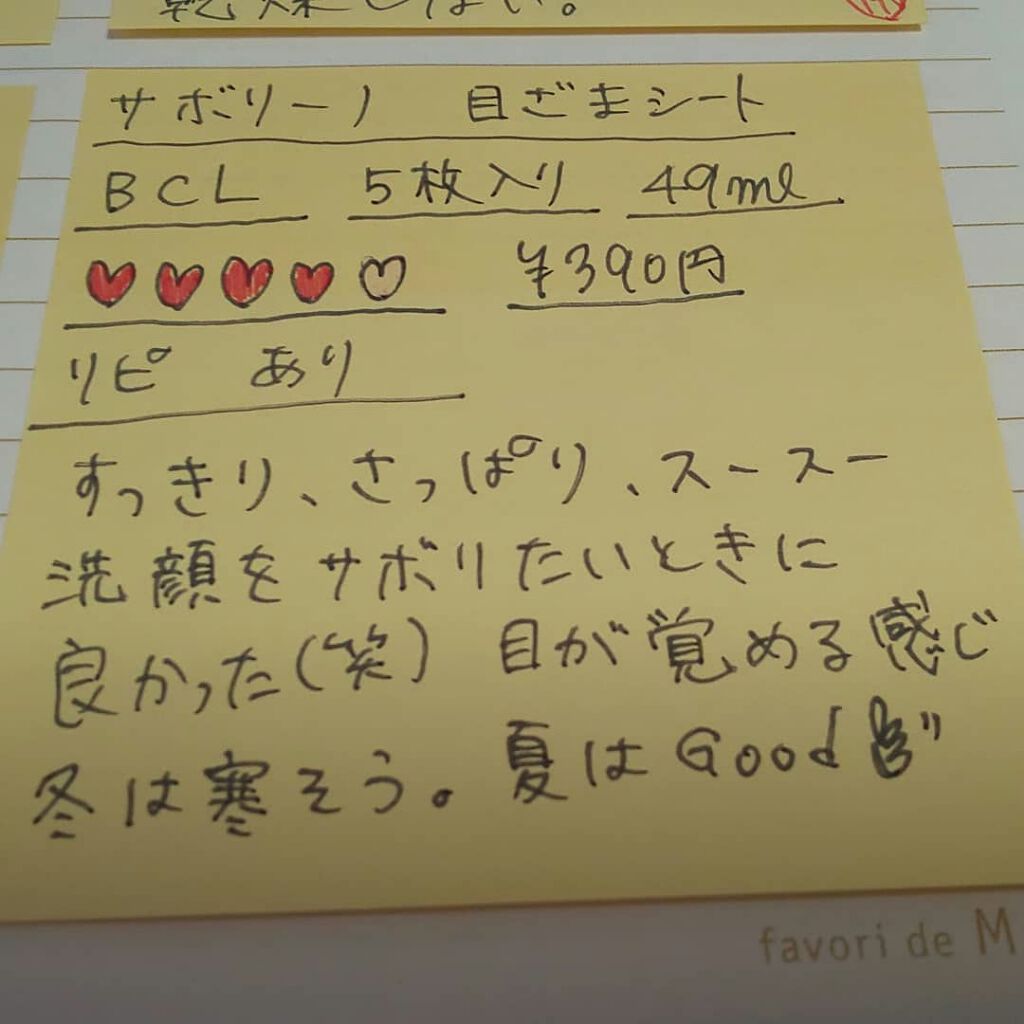 乾燥しない。
サボリーノ 目ざまシート
BCL 5枚入り 49ml
¥390円
リピ あり
すっきり、さっぱり、スースー
洗顔をサボりたいときに
良かった(笑) 目が覚める感じ
冬は寒そう。夏はGood
favori de M